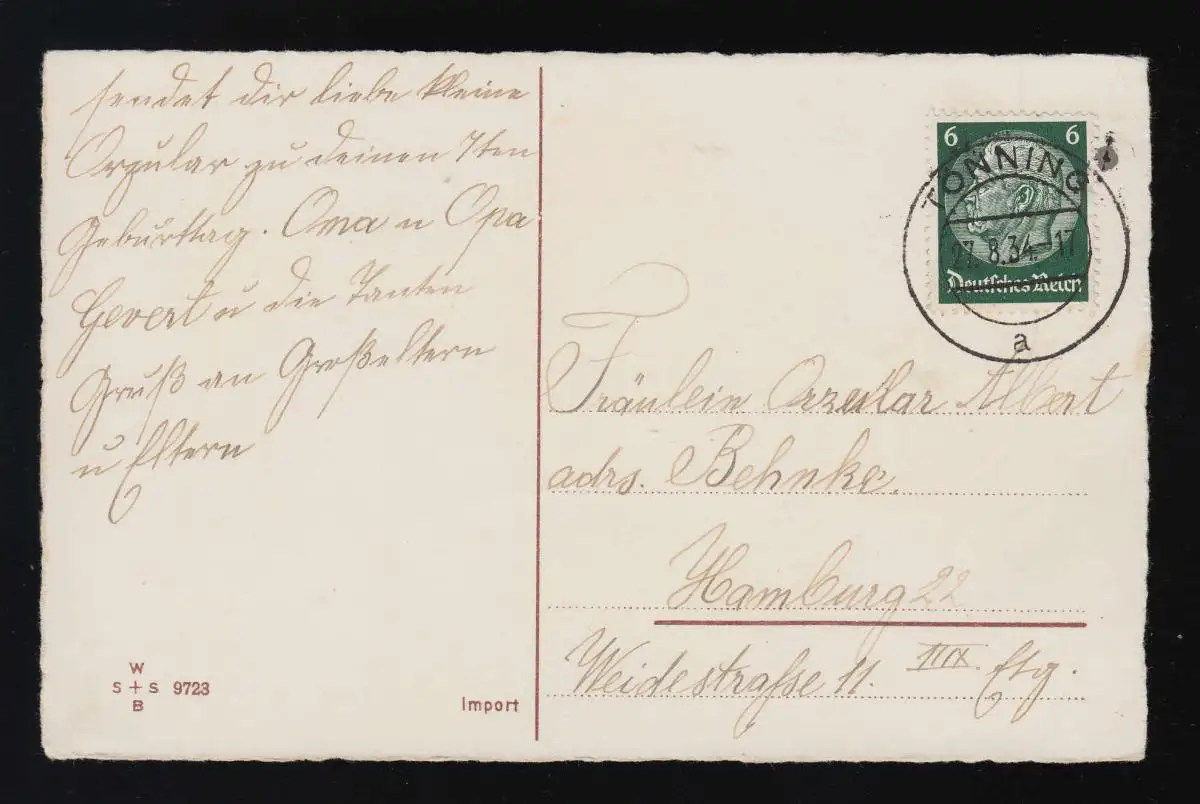 sendet dir liebe kleine
Orzular zu deinen 7ten
Geburttag. Oma u Opa
Gevert u die Tanten
Gruß an Großeltern
u Eltern
W
S + S 9723
B
Import
6 6
TÖNNING
27.8.34.-17
Deutsches Reich
a
Fräulein Orzular Albert
adrs. Behnke.
Hamburg 22
Weidestraße 11. Etg.